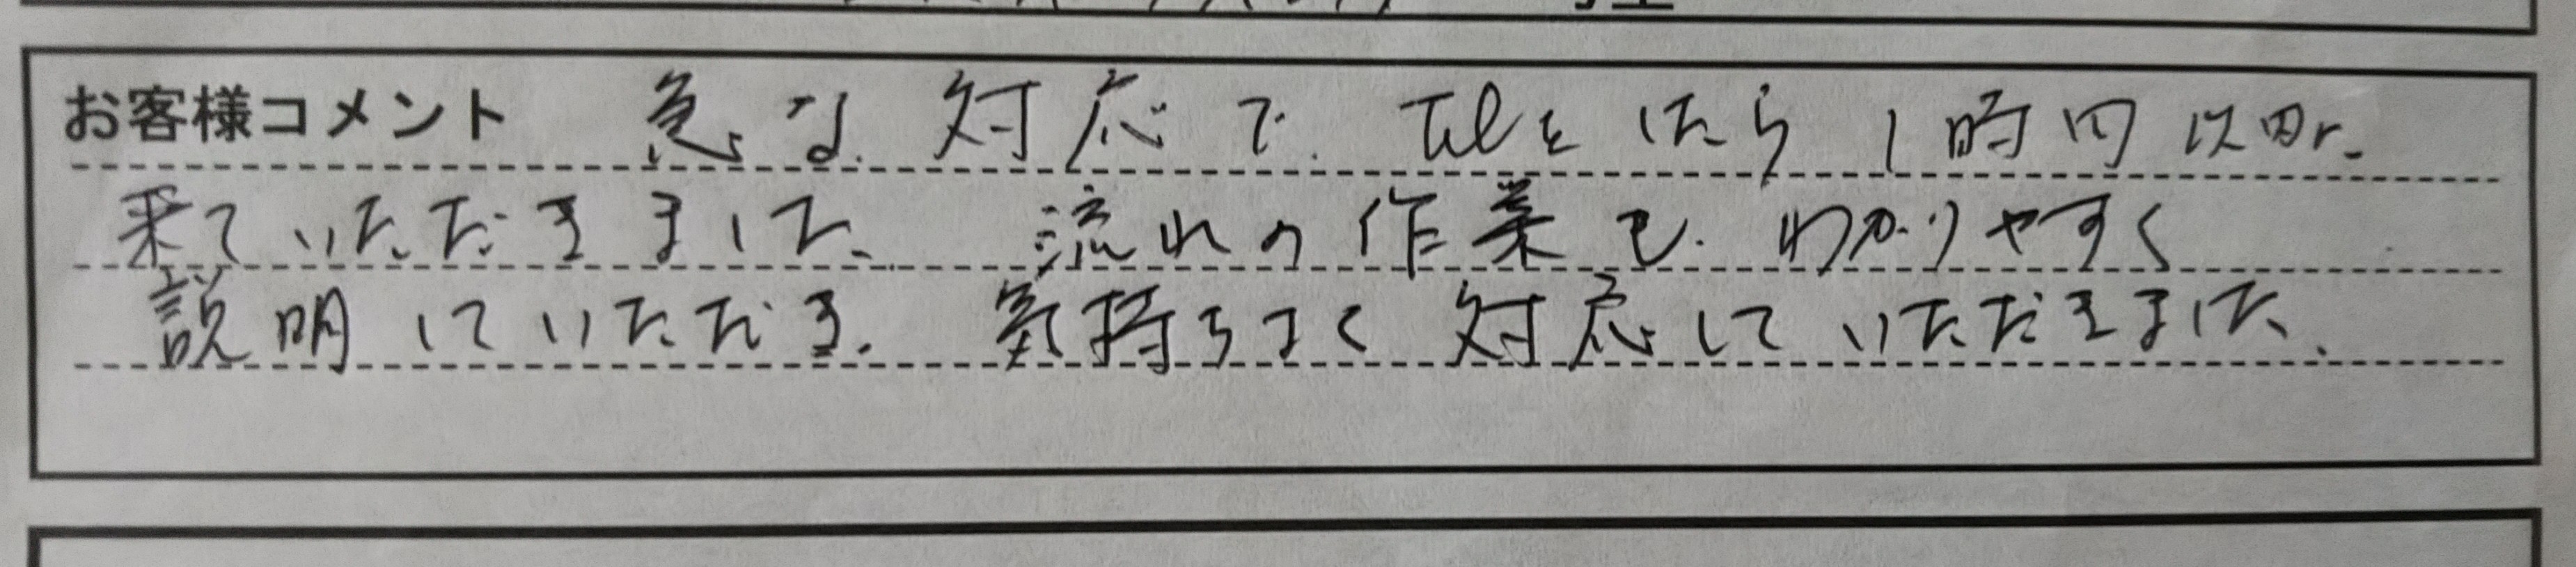 お客様コメント 急な対応で Telをしたら1時間以内に
来ていただきました 流れの作業も わかりやすく
説明していただき、気持ちよく対応していただきました。